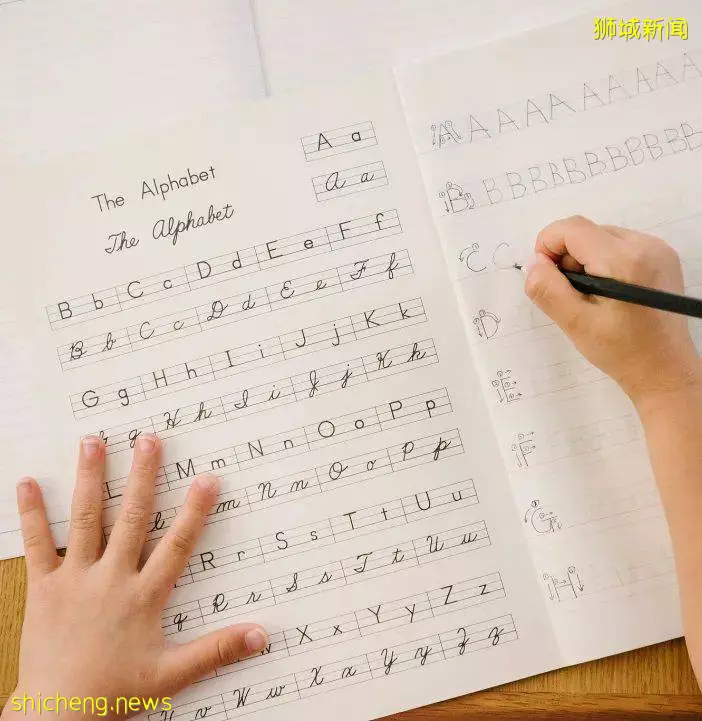 狮城新闻
A a
A a
The Alphabet
The Alphabet
B b C c D d E e F f
B b C c D d E e F f
G g H h I i J j K k
g H h I i J j K k
L M m N n O o P p
l m N n O o P p
R r S s T t U u
q R r S s T t U u
w X x Y y Z z
v W w X x Y y Z z
A A A A A A A A A A
B B B B B B B B B B B
C C
D
E
F
G
H
shicheng.news